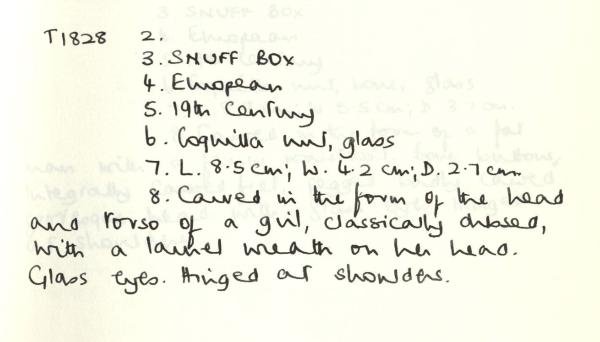 T1828 2.
3. SNUFF BOX
4. European
5. 19th Century
6. Coquilla nut, glass
7. L. 8.5 cm; W. 4.2 cm; D. 2.7 cm.
8. Carved in the form of the head
and torso of a girl, classically dressed,
with a laurel wreath on her head.
Glass eyes. Hinged at shoulders.